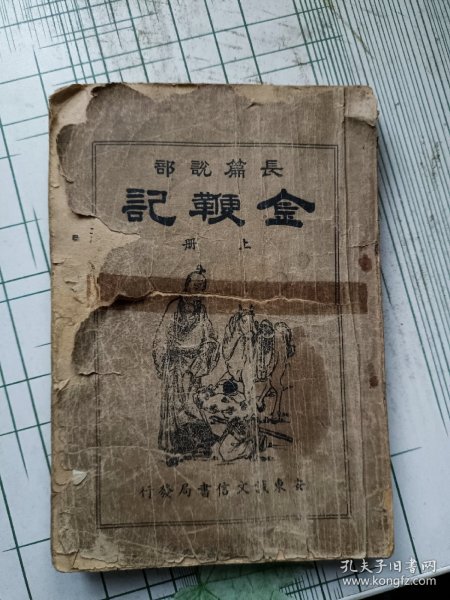 長篇說部
金鞭記
上冊
安東誠文信書局發行
孔夫子旧书网
www.kongfz.com